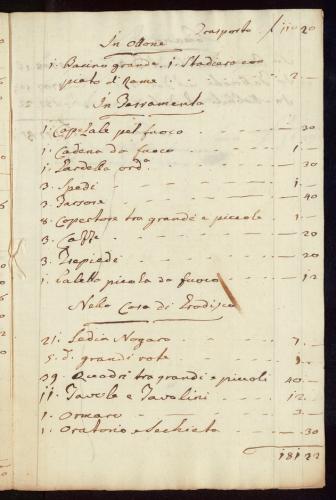 Trasporto £ 110 20
In Ottone
1. Bacino grande. 1. Stadiera con
piato d'Rame - - - 2 -
In Ferramento
1. Capofale pel fuoco - - - 30
1. Cadena da fuoco - - - 1 -
1. Padella ord.a - - - 30
3. Spedi - - - 1 -
3. - - - 40
8. Copertore tra grandi e picole 1 -
3. Cazze - - - 20
3. Trepiedi - - - 20
1. Paletta picola da fuoco - - 12
Nella Casa di Prodisco
21. Sedia Nogara - - - 7 -
5. d. grandi rote - - - 1 -
39. Quadri tra grandi e picoli 40 -
11. Tavole e Tavolini - - - 12
1. Ormaro - - - 3 -
1. Oratorio e Sechieto - - - 30
181 22